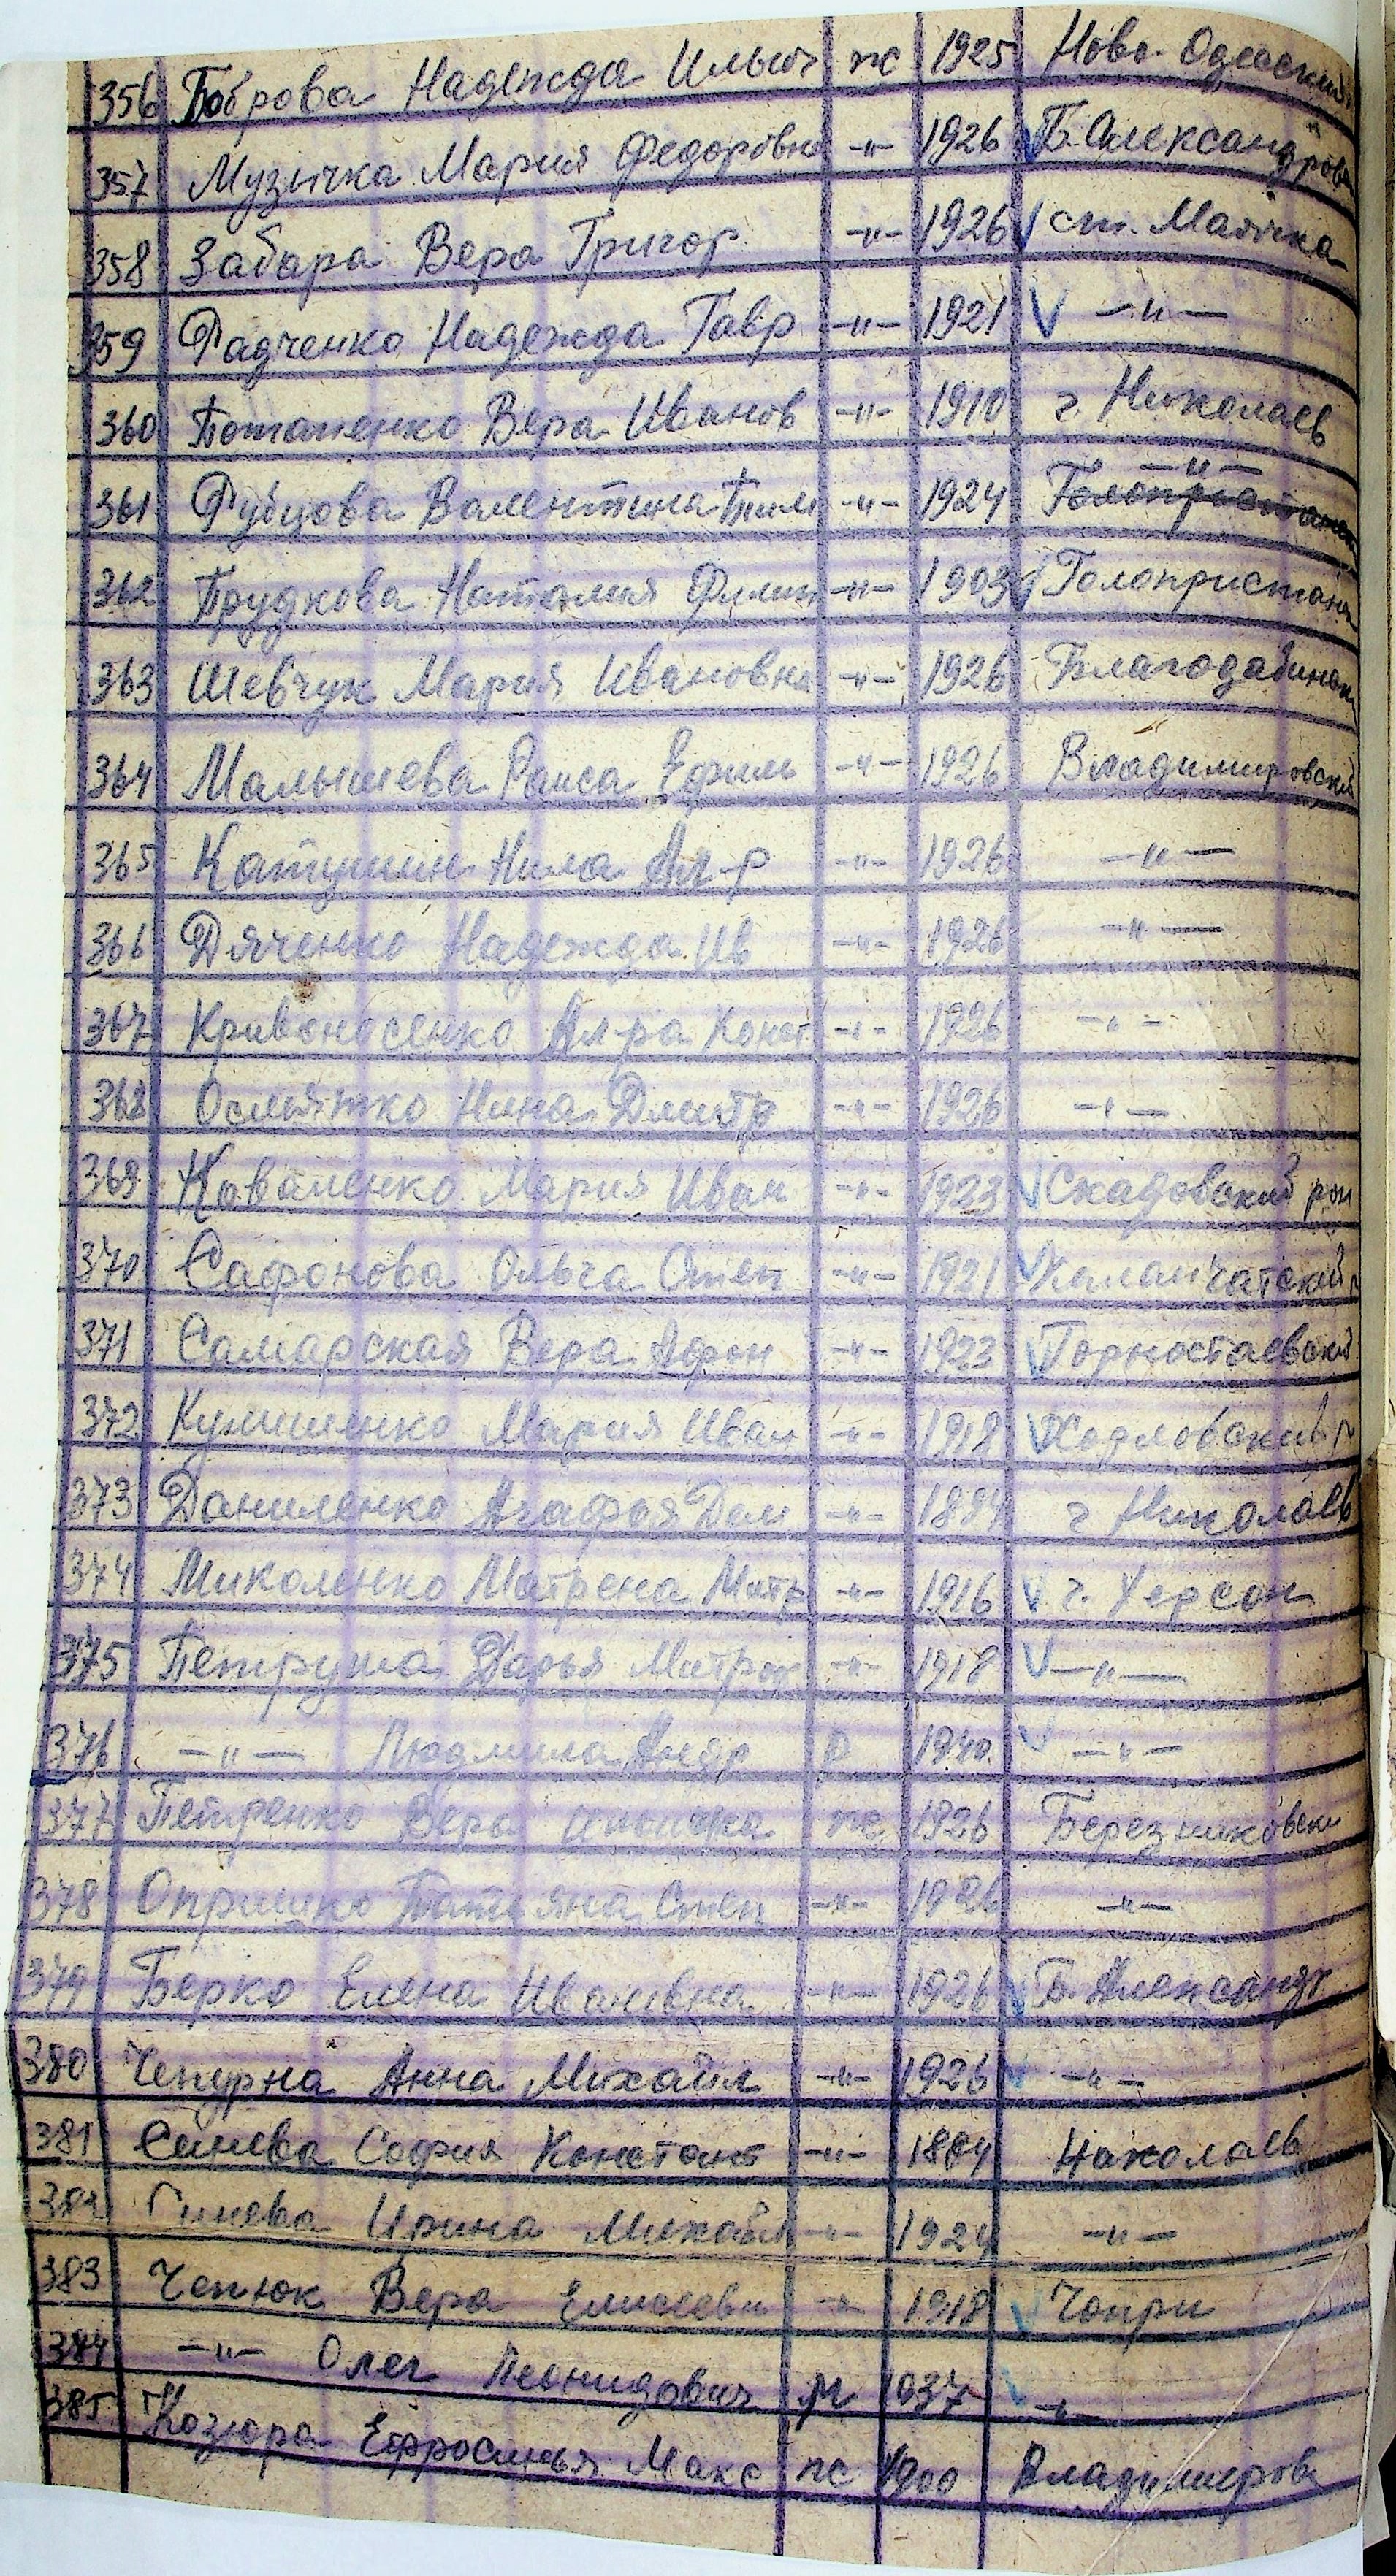 356 Боброва Надежда Ильин ж 1925 Ново-Одесский
357 Музычка Мария Федоровна -"- 1926 Б. Александров
358 Забара Вера Григор -"- 1926 ст. Маячка
359 Радченко Надежда Гавр -"- 1921 -"-
360 Потапенко Вера Иванов -"- 1910 г. Николаев
361 Рубцова Валентина Тим -"- 1924 -"- Голопристан
362 Прудкова Наталия Филип -"- 1903 Голопристан
363 Шевчук Мария Ивановна -"- 1926 Благодатновск
364 Малышева Раиса Ефим -"- 1926 Владимировский
365 Катушин Нила Ал-р -"- 1926 -"-
366 Дяченко Надежда Ив -"- 1926 -"-
367 Кривоносенко Ал-ра Конст -"- 1926 -"-
368 Нина Дмитр -"- 1926 -"-
369 Коваленко Мария Иван -"- 1923 Скадовский рон
370 Сафонова Ольга Степ -"- 1921 Каланчатский р
371 Самарская Вера Афон -"- 1923 Горностаевский
372 Мария Иван -"- 1918
373 Даниленко Агафья Дем -"- г Николаев
374 Миколенко Матрена Митр -"- 1916 г. Херсон
375 Петруша Дарья Митроф -"- 1918 -"-
376 -"- Людмила Андр р 1940 -"-
377 Петренко Вера ж 1926 Березниковски
378 Опришко Татьяна Степ -"- 1926 -"-
379 Берко Елена Ивановна -"- 1926 Б. Александр
380 Чепурна Анна Михайл -"- 1926 -"-
381 Синева София Констант -"- 1884 Николаев
382 Синева Ирина Михайл -"- 1924 -"-
383 Чепюк Вера Елисеевн -"- 1918 Чопри
384 -"- Олег Леонидович м 1937 -"-
385 Козюра Ефросинья Макс ж 1900 Владимиров